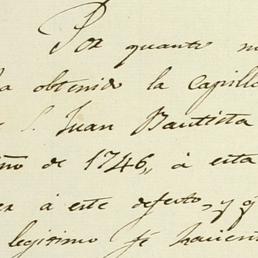 Por quanto
obtenido la Capill
S. Juan Bautista
de 1746,, á esta
á este defecto, y q
legitimo fé hacien